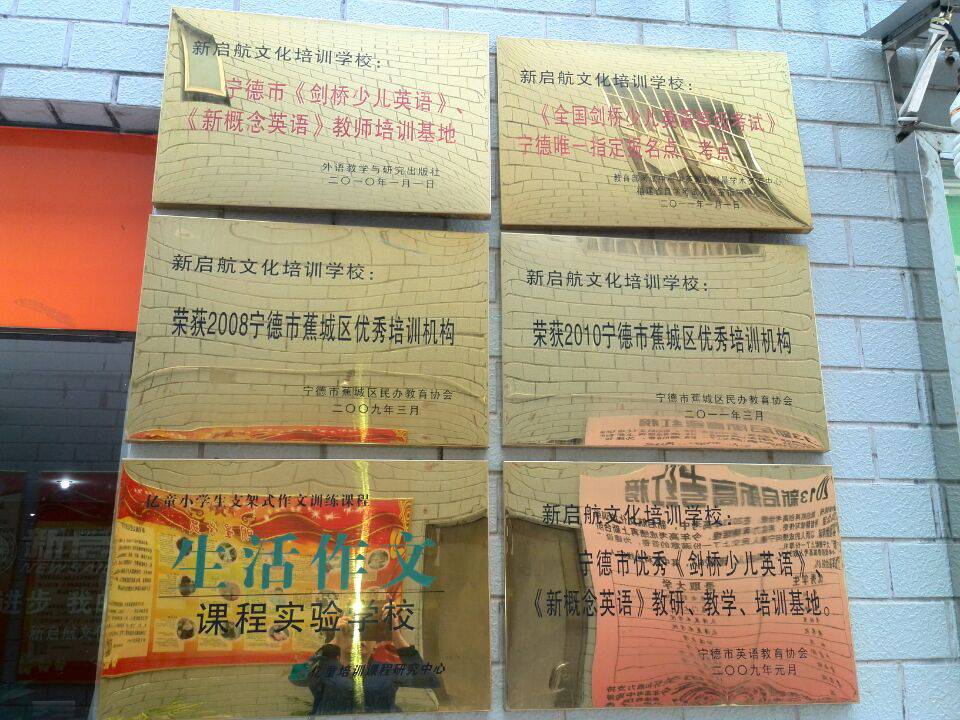 新启航文化培训学校：
宁德市《剑桥少儿英语》、
《新概念英语》教师培训基地
外语教学与研究出版社
二〇一〇年一月一日
新启航文化培训学校：
《全国剑桥少儿英语等级考试》
宁德唯一指定报名点、考点
二〇一一年一月一日
新启航文化培训学校：
荣获2008宁德市蕉城区优秀培训机构
宁德市蕉城区民办教育协会
二〇〇九年三月
新启航文化培训学校：
荣获2010宁德市蕉城区优秀培训机构
宁德市蕉城区民办教育协会
二〇一一年三月
亿童小学生支架式作文训练课程
生活作文
课程实验学校
亿童培训课程研究中心
新启航文化培训学校：
宁德市优秀《剑桥少儿英语》、
《新概念英语》教研、教学、培训基地。
宁德市英语教育协会
二〇〇九年元月
进步 我
新启航文